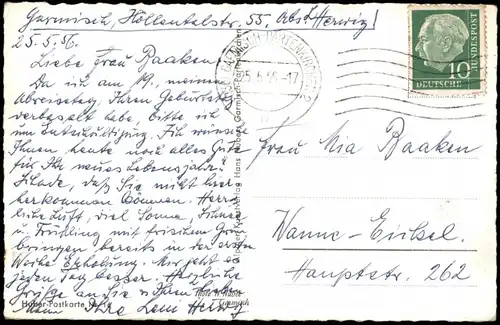 Garmisch, Höllentalstr. 55. Abs. Herwig!
25.5.56.
Liebe Frau Baaken
Da ich am 19., meinem
Abreisetag, Ihren Geburtstag
verpaßt habe, bitte ich
um Entschuldigung. Ich wünsche
Ihnen heute noch alles Gute
für Ihr neues Lebensjahr.
Schade, daß Sie nicht hier
herkommen können. Herr-
liche Luft, viel Sonne,
u. Frühling mit frischem
bringen bereits in der ersten
Woche Erholung. Mir geht es
jeden Tag besser. Herzliche
Grüße an Sie u. Ihren
Ihre Leni Herwig
Huber-Postkarte
Verlag Hans Huber, Garmisch-Partenkirchen
Foto H. Huber
Garmisch
GARMISCH-PARTENKIRCHEN 2
25.5.56-17
DEUTSCHE
BUNDESPOST
10
Frau Mia Baaken
Wanne-Eickel.
Hauptstr. 262